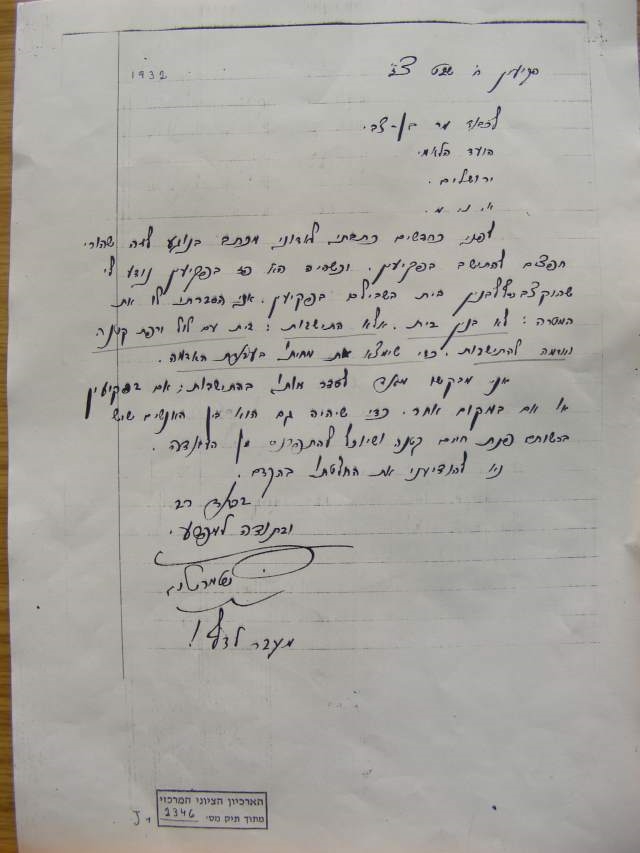 פקיעין ח' שבט צב
1932
לכבוד מר בן-צבי
הועד הלאמי
ירושלים.
א. נ. מ.
לפני כחדשים כתבתי לאדוני מכתב בנוגע לזה שהורי
חפצים להתישב בפקיעין. וכשהיה הא פז בפקיעין נודע לי
שהוקצב לבנין בית בשבילם בפקיעין. אני הסברתי לו את
המטרה: לא בנין בית. אלא התישבות: בית עם לול ורפת קטנה
ואדמה להתישבות. כדי שימצא את מחיתו בעבודת האדמה.
אני מבקשו מאד לסדר אותו בהתישבות; אם בפקיעין
או אם במקום אחר. כדי שיהיה גם הוא בין האנשים שיש
ברשותם פנת חיים קטנה ושיוכל להתפרנס מן האדמה.
נא להודיעני את החלטתו בהקדם.
בכבוד רב
ובתודה למפרע.
מעבר לדף!
הארכיון הציוני המרכזי
מתוך תיק מס' 2346
J 1